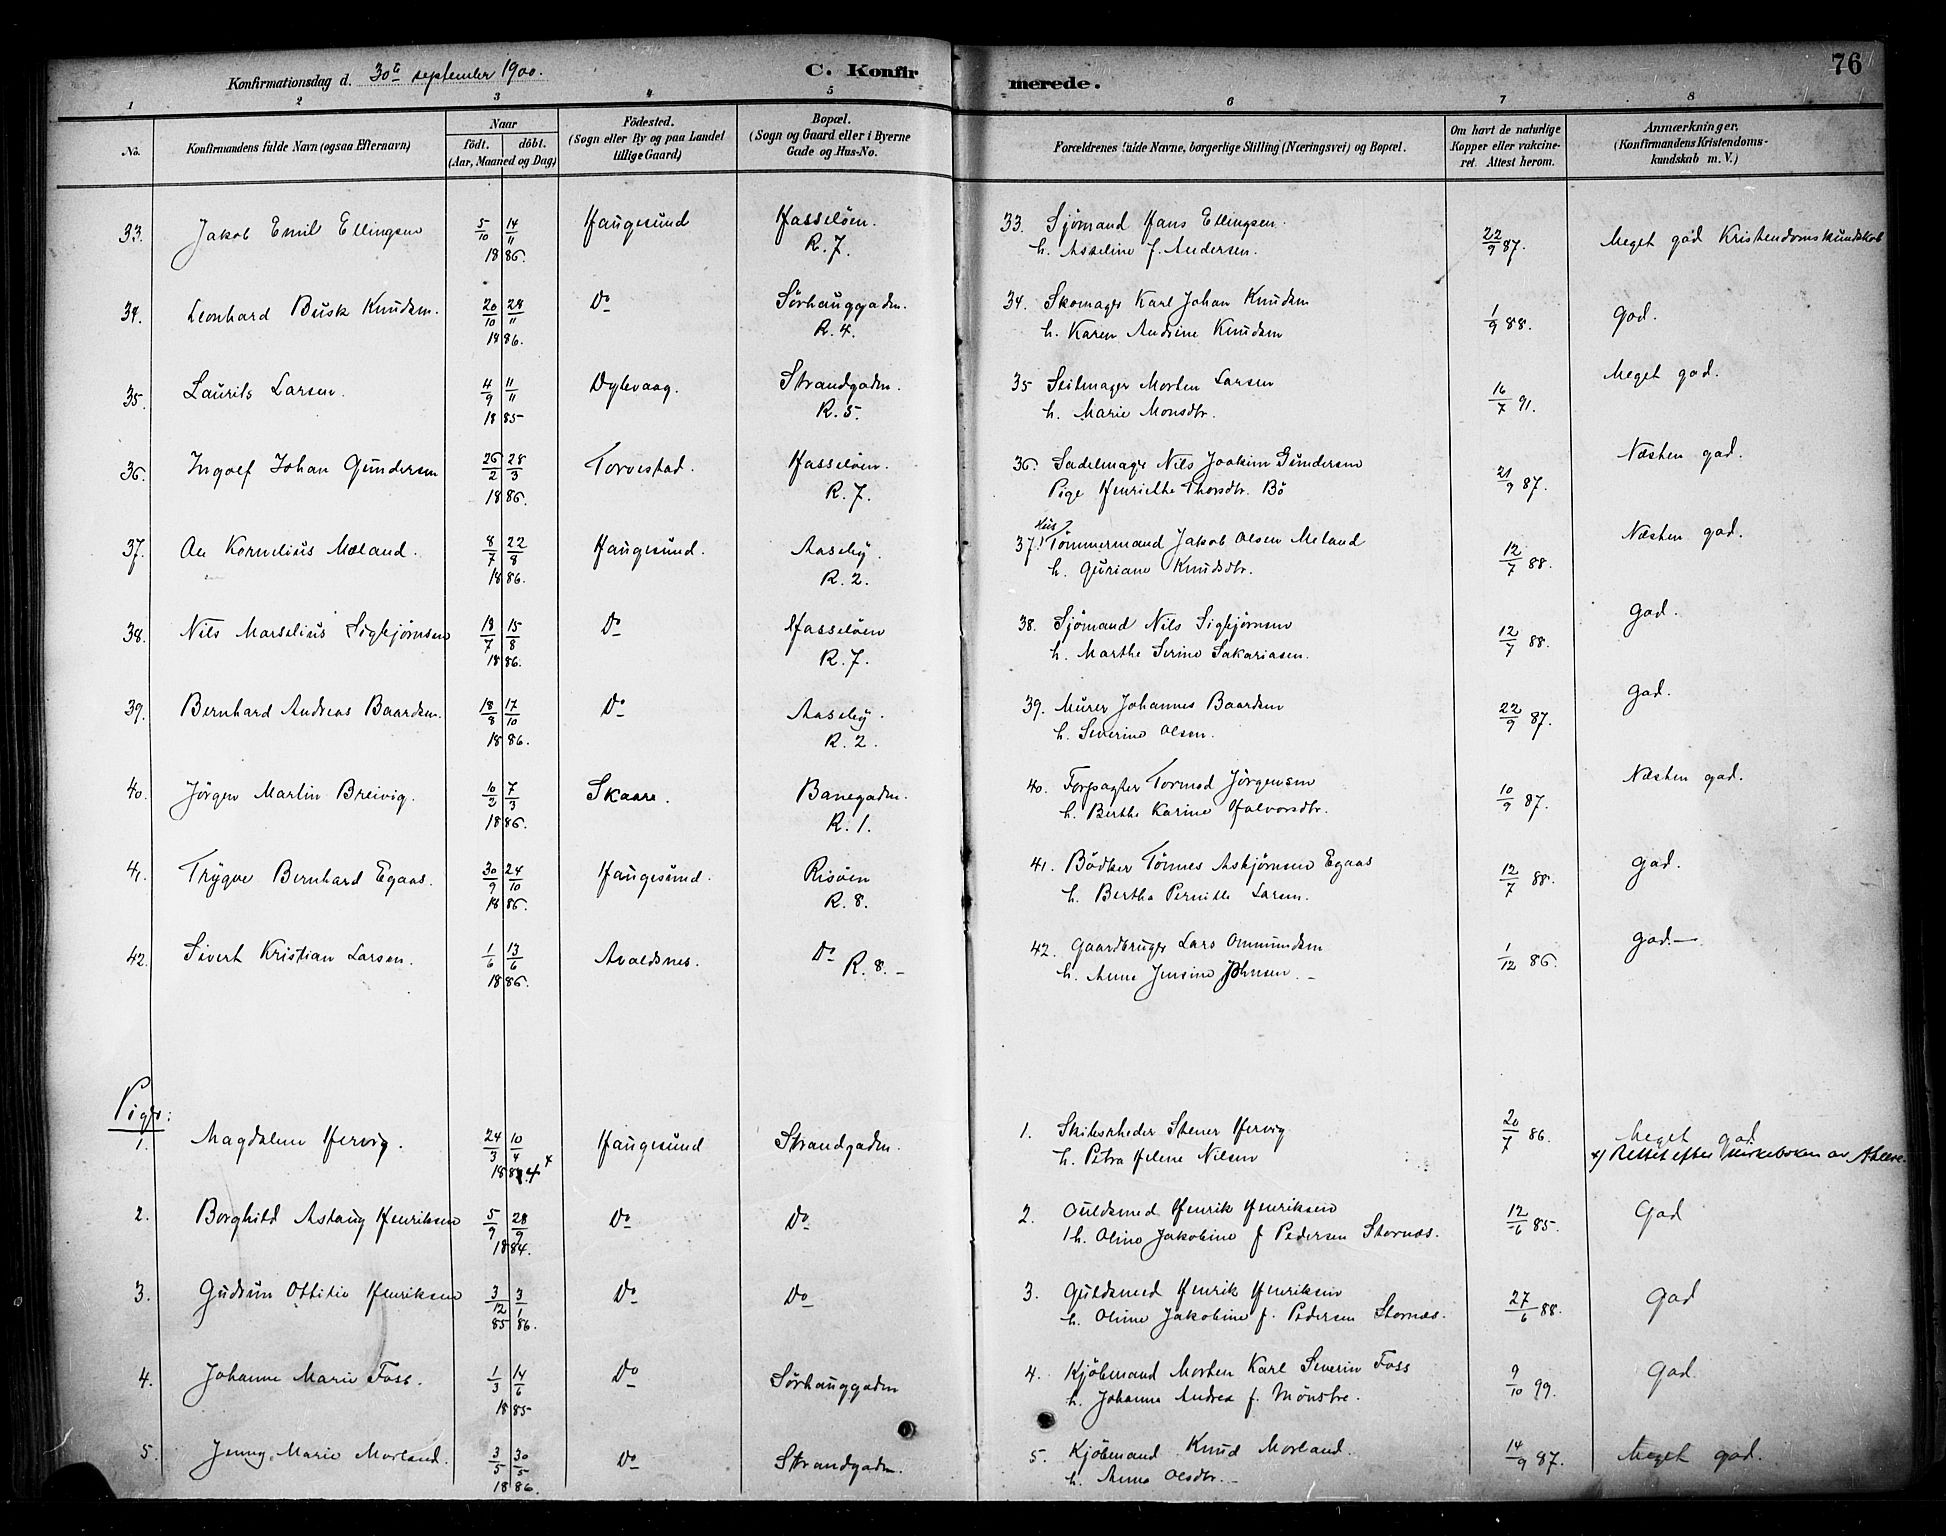 Konfirmationsdag d. 30te september 1900. C. Konfirmerede. 76
1 2 3 4 5 6 7 8
No. Konfirmandens fulde Navn (ogsaa Efternavn) Naar födt. döbt. (Aar, Maaned og Dag) Födested. (Sogn eller By og paa Landet tillige Gaard) Bopæl. (Sogn og Gaard eller i Byerne Gade og Hus-No. Forældrenes fulde Navne, borgerlige Stilling (Næringsvei) og Bopæl. Om havt de naturlige Kopper eller vakcineret. Attest herom. Anmærkninger. (Konfirmandens Kristendomskundskab m. V.)
33. Jakob Emil Ellingsen 5/10 14/11 1886. Haugesund Hasseløen. R. 7. 33. Sjömand Hans Ellingsen. 22/9 87. Meget god Kristendomskundskab
h. Asseline f. Andersen.
34. Leonhard Busk Knudsen. 20/10 28/11 1886. Do Sørhauggaden. R. 4. 34. Skomager Karl Johan Knudsen 1/9 88. god.
h. Karen Andrine Knudsen
35. Laurits Larsen. 4/9 11/11 1885 Dylevaag. Strandgaden. R. 5. 35 Seilmager Morten Larsen 16/7 91. Meget god.
h. Marie Monsdtr.
36. Ingolf Johan Gundersen 26/2 28/3 1886. Torvestad. Hasseløen. R. 7. 36. Sadelmager Nils Joakim Gundersen 21/9 87. Næsten god.
Pige Henriette Thorsdtr. Bö
37. Au Kornelius Mæland. 8/7 22/8 1886. Haugesund. Aaseby. R. 2. 37. Hus? Tömmermand Jakob Olsen Meland 12/7 88. Næsten god.
h. Guriane Knudsdtr.
38. Nils Marselius Sigbjørnsen 18/7 15/8 1886. Do Hasseløen R. 7. 38. Sjömand Nils Sigbjørnsen 12/7 88. god.
h. Marthe Serine Sakariasen.
39. Bernhard Andreas Baardsen. 18/8 17/10 1886. Do Aaseby. R. 2. 39. Murer Johannes Baardsen 22/9 87. god.
h. Severine Olsen.
40. Jörgen Martin Breivig. 10/2 7/3 1886. Skaare. Banegaden. R. 1. 40. Forpagter Tormod Jörgensen 10/9 87. Næsten god.
h. Berthe Karine Halvorsdtr.
41. Trygve Bernhard Egaas. 30/9 24/10 1886. Haugesund. Risöen R. 8. 41. Bödker Tönnes Asbjørnsen Egaas 12/7 88. god.
h. Bertha Pernille Larsen.
42. Sivert Kristian Larsen. 1/6 13/6 1886. Avaldsnes. Do R. 8. – 42. Gaardbruger Lars Ommundsen 1/12 86. god. –
h. Anne Jensine Johnsen. –
Piger:
1. Magdalene Hervig. 24/3 10/4 1884 x Haugesund Strandgaden. 1. Skibsrheder Stener Hervig 20/7 86. Meget god
h. Petra Helene Nilsen x) Rettet efter kirkeboken av
2. Borghild Aslaug Henriksen 5/9 28/9 1884. Do Do 2. Guldsmed Henrik Henriksen 12/6 85. God
h. Oline Jakobine f Pedersen Stornæs.
3. Gudrun Ottilie Henriksen 3/12 85 3/1 86. Do Do 3. Guldsmed Henrik Henriksen 27/6 88. God
h. Oline Jakobine f. Pedersen Stornæs.
4. Johanne Marie Foss. 1/3 14/6 1885 Do Sørhauggaden 4. Kjöbmand Morten Karl Severin Foss 9/10 99. God.
h. Johanne Andrea f. Mönstre.
5. Jenny Marie Morland. 3/5 30/5 1886. Do Strandgaden. 5. Kjöbmand Knud Morland. 14/9 87. Meget god.
h. Anna Olsdtr. –